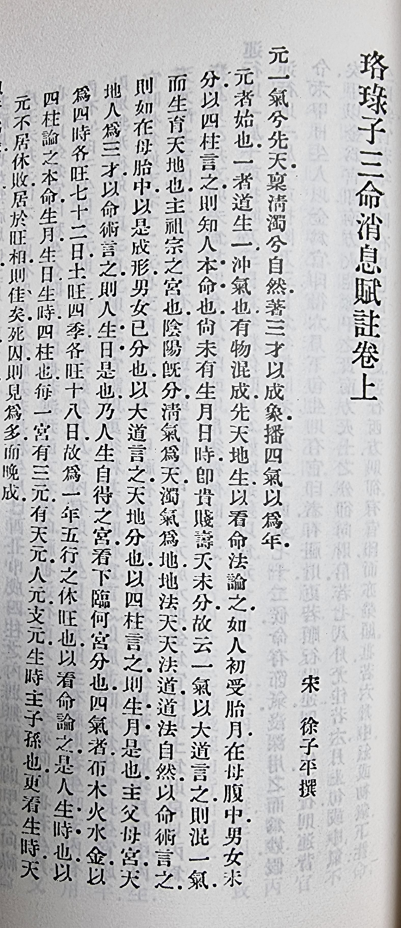 珞琭子三命消息賦註卷上
宋　徐子平撰
元一氣兮先天稟淸濁兮自然著三才以成象播四氣以爲年
元者始也一者道生一沖氣也有物混成先天地生以看命法論之如人初受胎月在母腹中男女未
分以四柱言之則知人本命也尙未有生月日時卽貴賤壽夭未分故云一氣以大道言之則混一氣
而生育天地也主祖宗之宮也陰陽旣分淸氣爲天濁氣爲地地法天天法道道法自然以命術言之
則如在母胎中以是成形男女已分也以大道言之天地分也以四柱言之則生月是也主父母宮天
地人爲三才以命術言之則人生日是也乃人生自得之宮看下臨何宮分也四氣者布木火水金以
爲四時各旺七十二日土旺四季各旺十八日故爲一年五行之休旺也以看命論之是人生時也以
四柱論之本命生月生日生時四柱也每一宮有三元有天元人元支元生時主子孫也更看生時天
元不居休敗居於旺相則佳矣死囚則見爲多而晚成